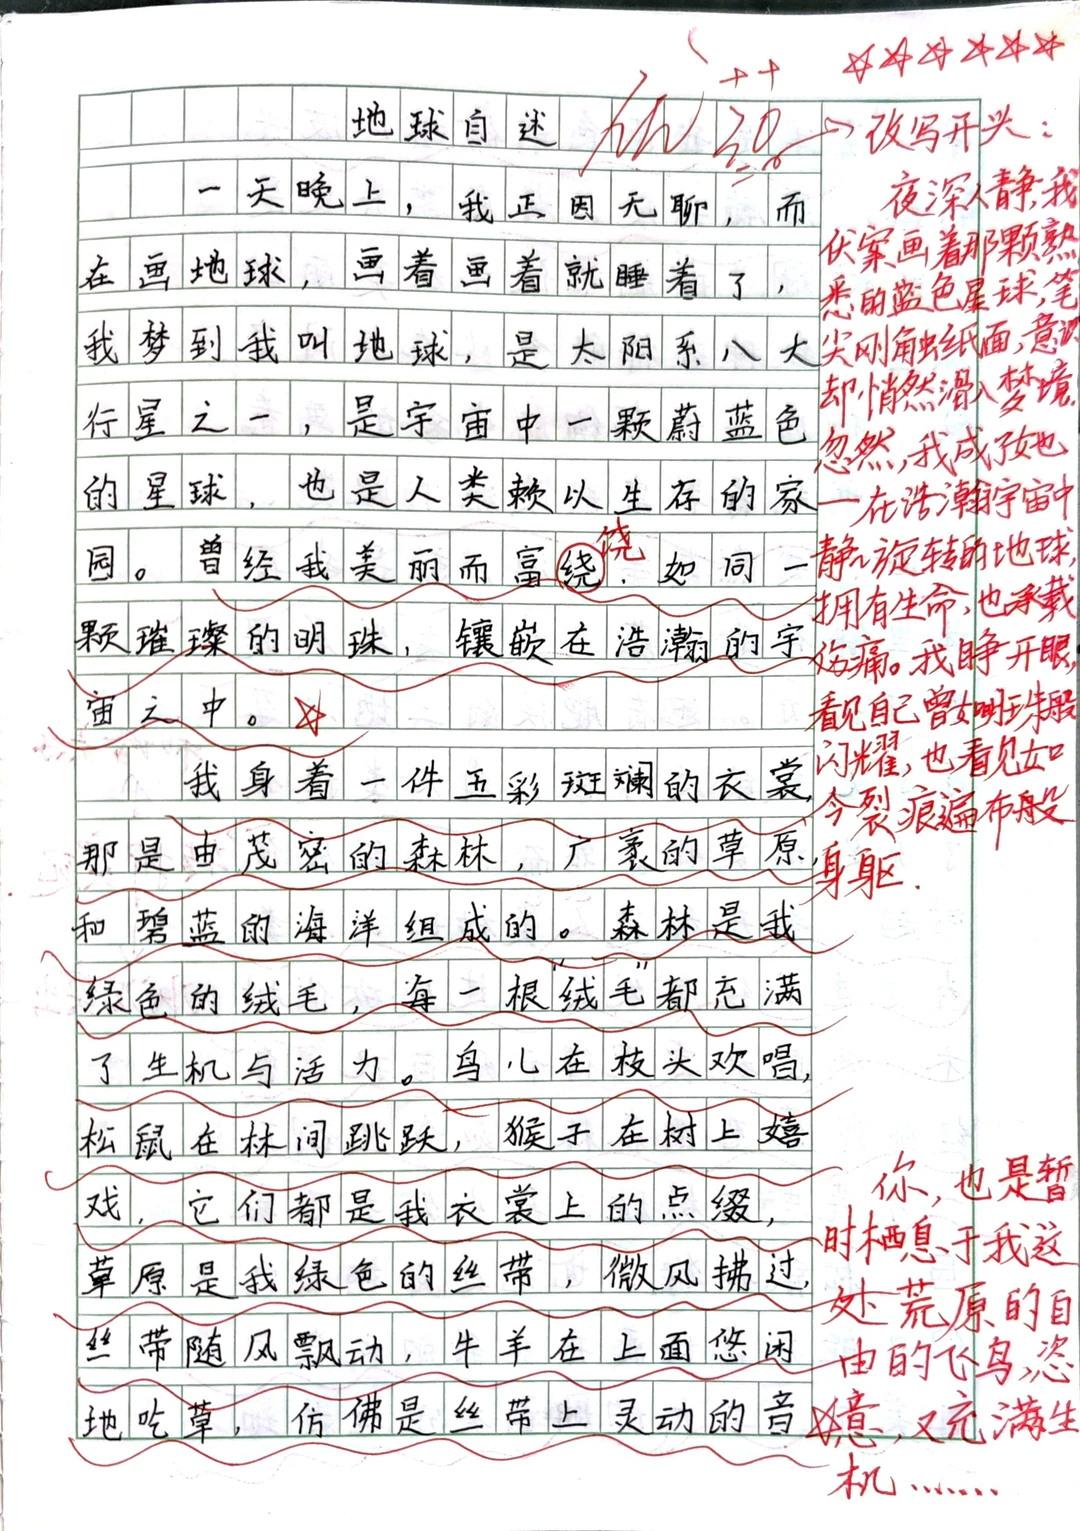 地球自述
优++
→改写开头：
一天晚上，我正因无聊，而
在画地球，画着画着就睡着了，
我梦到我叫地球，是太阳系八大
行星之一，是宇宙中一颗蔚蓝色
的星球，也是人类赖以生存的家
园。曾经我美丽而富绕，如同一
饶
颗璀璨的明珠，镶嵌在浩瀚的宇
宙之中。
我身着一件五彩斑斓的衣裳，
那是由茂密的森林，广袤的草原，
和碧蓝的海洋组成的。森林是我
绿色的绒毛，每一根"绒毛"都充满
了生机与活力。鸟儿在枝头欢唱，
松鼠在林间跳跃，猴子在树上嬉
戏，它们都是我衣裳上的点缀，
草原是我绿色的丝带，微风拂过，
丝带随风飘动，牛羊在上面悠闲
地吃草，仿佛是丝带上灵动的音
夜深人静，我
伏案画着那颗熟
悉的蓝色星球，笔
尖刚触纸面，意识
却悄然滑入梦境，
忽然，我成了她
一在浩瀚宇宙中
静静旋转的地球，
拥有生命，也承载
伤痛。我睁开眼，
看见自己曾如明珠般
闪耀，也看见如
今裂痕遍布般
身躯.
你，也是暂
时栖息于我这
处荒原的自
由的飞鸟，恣
意，又充满生
机……